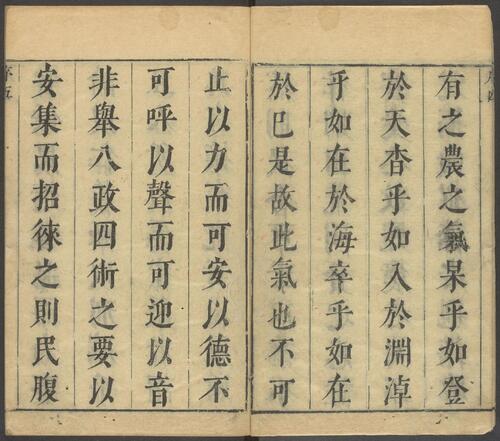 有之農之氣杲乎如登
於天杳乎如入於淵淖
乎如在於海卒乎如在
於巳是故此氣也不可
止以力而可安以德不
可呼以聲而可迎以音
非舉八政四術之要以
安集而招徠之則民腹
序五